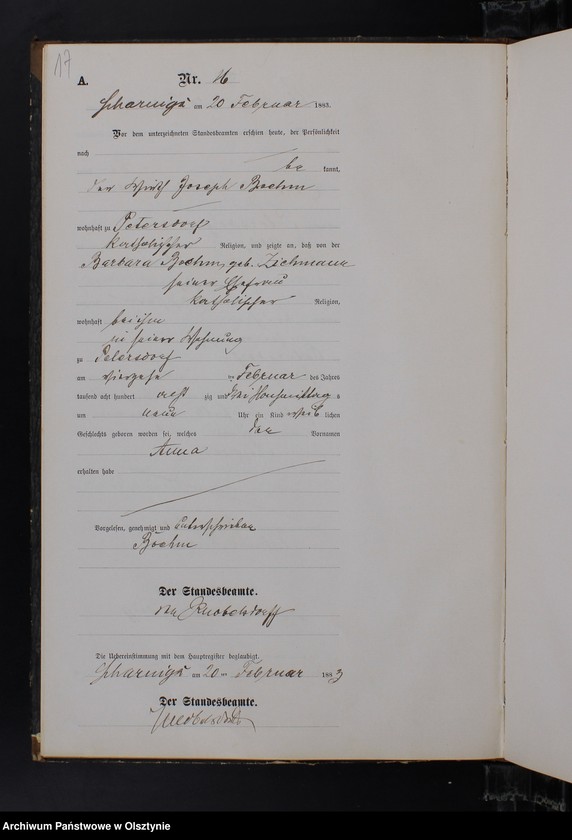 17
A.
Nr. 16
Scharnigk am 20 Februar 1883.
Vor dem unterzeichneten Standesbeamten erschien heute, der Persönlichkeit
nach
be kannt,
der Wirth Joseph Boehm
wohnhaft zu Petersdorf
katholischer Religion, und zeigte an, daß von der
Barbara Boehm, geb. Zichmann
seiner Ehefrau
katholischer Religion,
wohnhaft bei ihm
in seiner Wohnung
zu Petersdorf
am vierzehn ten Februar des Jahres
tausend acht hundert acht zig und drei Vormittag s
um neun Uhr ein Kind weib lichen
Geschlechts geboren worden sei, welches den Vornamen
Anna
erhalten habe
Vorgelesen, genehmigt und unterschrieben
Böehm
Der Standesbeamte.
von Knobelsdorff
Die Uebereinstimmung mit dem Hauptregister beglaubigt.
Scharnigk am 20 ten Februar 1883
Der Standesbeamte.
Knobelsdorff
Archiwum Państwowe w Olsztynie